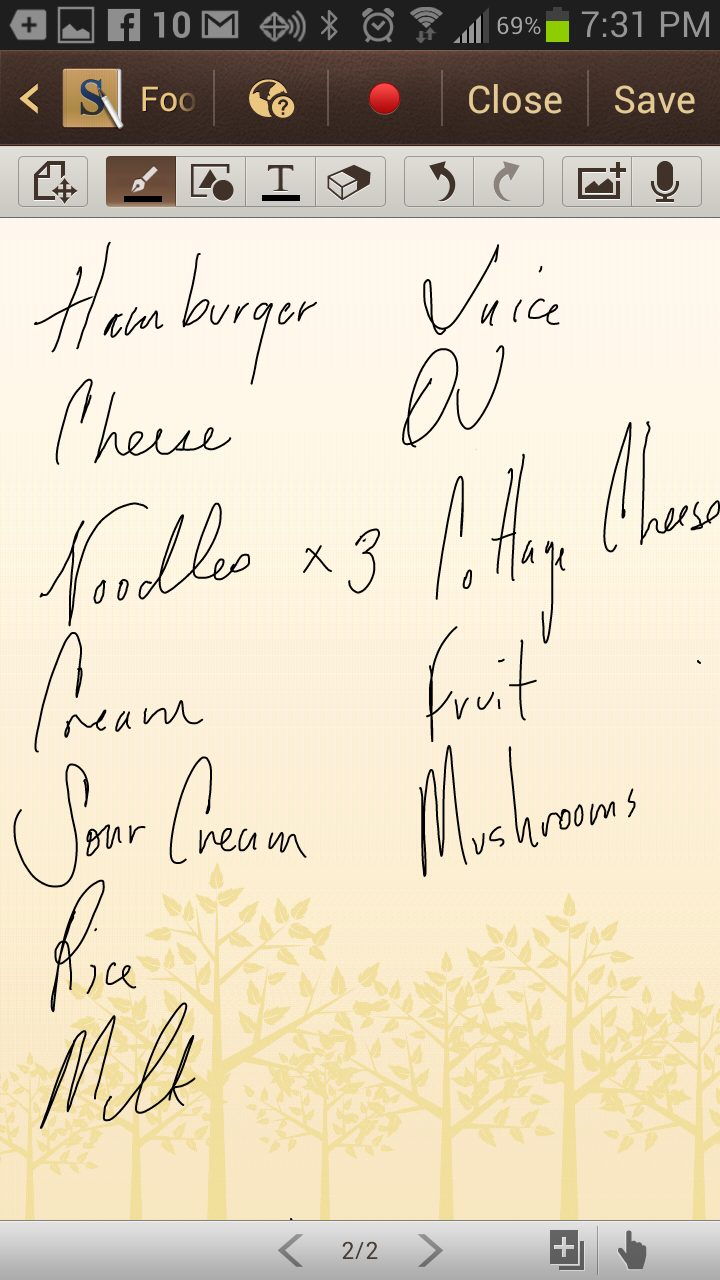 10 69% 7:31 PM
S Foo Close Save
T
Hamburger
Cheese
Noodles x 3
Cream
Sour Cream
Rice
Milk
Juice
OJ
Cottage Cheese
Fruit
Mushrooms
2/2